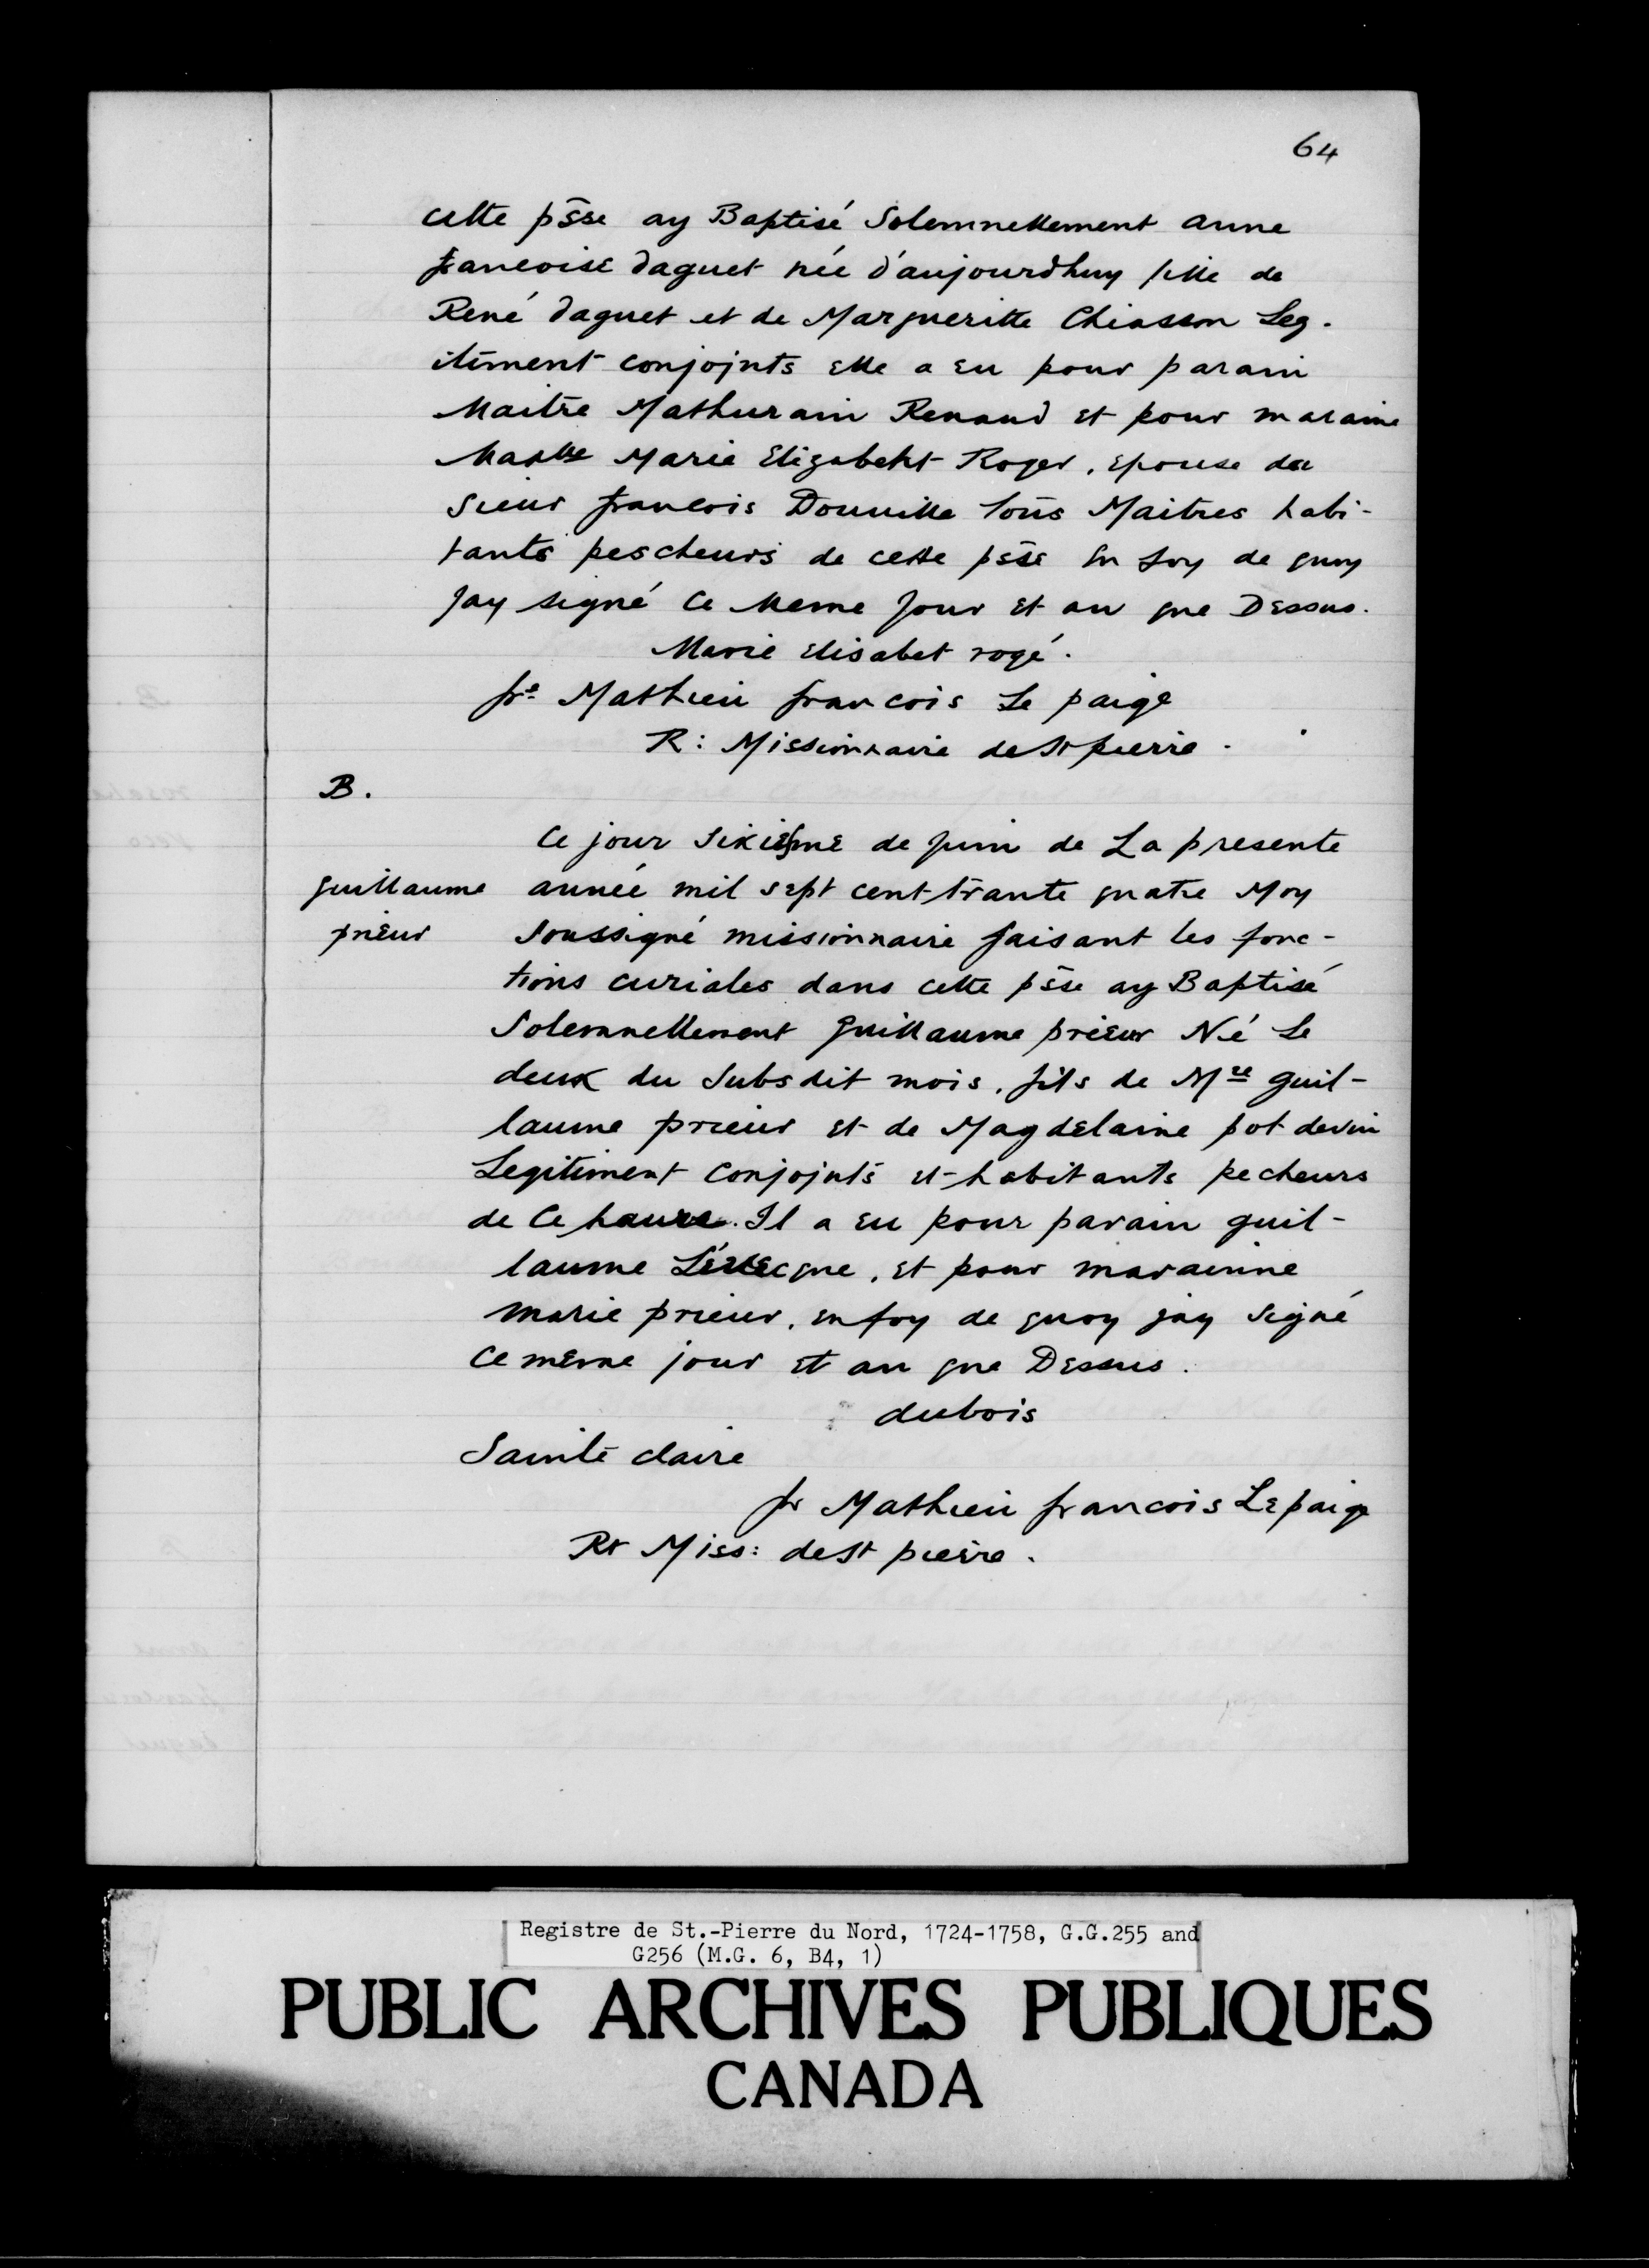 64
cette p̄sse ay Baptisé Solemnellement anne
francoise daguet née d'aujourdhuy fille de
René daguet et de Margueritte Chiasson Leg.
itiment conjojnts elle a eu pour parain
Maitre Mathurain Renaud et pour maraine
Marie Elizabeht Roger, epouse du
sieur francois Douuille tous Maitres habi-
tants pescheurs de cette p̄sse En foy de quoy
Jay signé Ce Meme Jour et an que Dessus.
Marie elisabet rogé.
fre Mathieu francois Le paige
R: Missionnaire de St pierre.
B.
Ce jour Sixiesme de Juin de La presente
guillaume année mil sept cent trante quatre Moy
prieur Soussigné missionnaire faisant les fonc-
tions curiales dans cette p̄sse ay Baptisé
Solemnellement guillaume prieur Né Le
deux du Subsdit mois, fils de Mre guil-
laume prieur et de Magdelaine pot devin
Legitiment Conjojnts et habitants pecheurs
de Ce haure. Il a eu pour parain guil-
laume Lévecque, et pour marainne
marie prieur, en foy de quoy jay signé
Ce meme jour et an que Dessus.
dubois
Sainte claire
fr Mathieu francois Lepaige
Rt Miss: de St pierre.
Registre de St.-Pierre du Nord, 1724-1758, G.G.255 and
G256 (M.G. 6, B4, 1)
PUBLIC ARCHIVES PUBLIQUES
CANADA